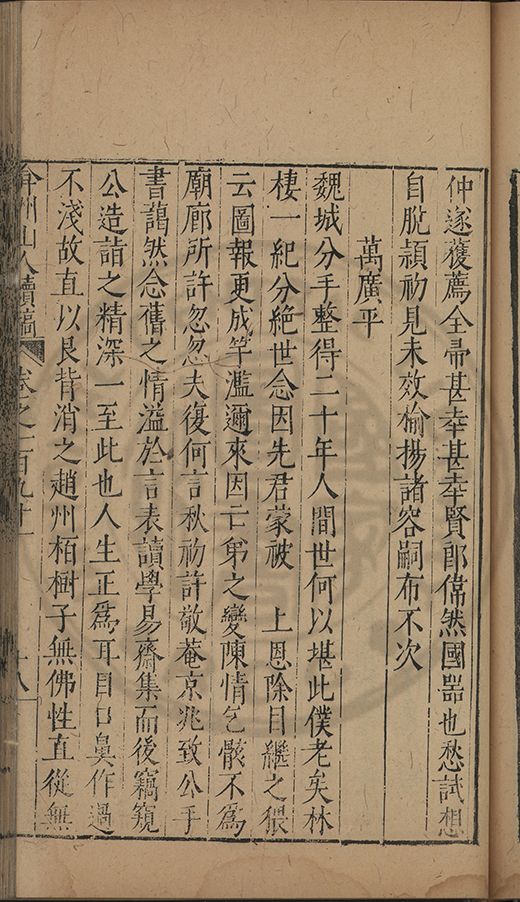 仲遂獲薦全帚甚幸甚幸賢郎偉然國器也愁試想
自脫頴初見未效揄揚諸容嗣布不次
萬廣平
魏城分手整得二十年人間世何以堪此僕老矣林
棲一紀分絕世念因先君蒙被 上恩除目繼之猥
云圖報更成竽濫邇來因亡弟之變陳情乞骸不爲
廟廊所許忽忽夫復何言秋初許敬菴京兆致公手
書藹然念舊之情溢於言表讀學易齋集而後竊窺
公造詣之精深一至此也人生正爲耳目口鼻作過
不淺故直以艮背消之趙州栢樹子無佛性直從無
弇州山人續稿 卷之一百九十一 十八